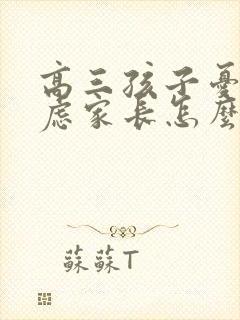 高三孩子憂
慮家長怎麼
蘇蘇T